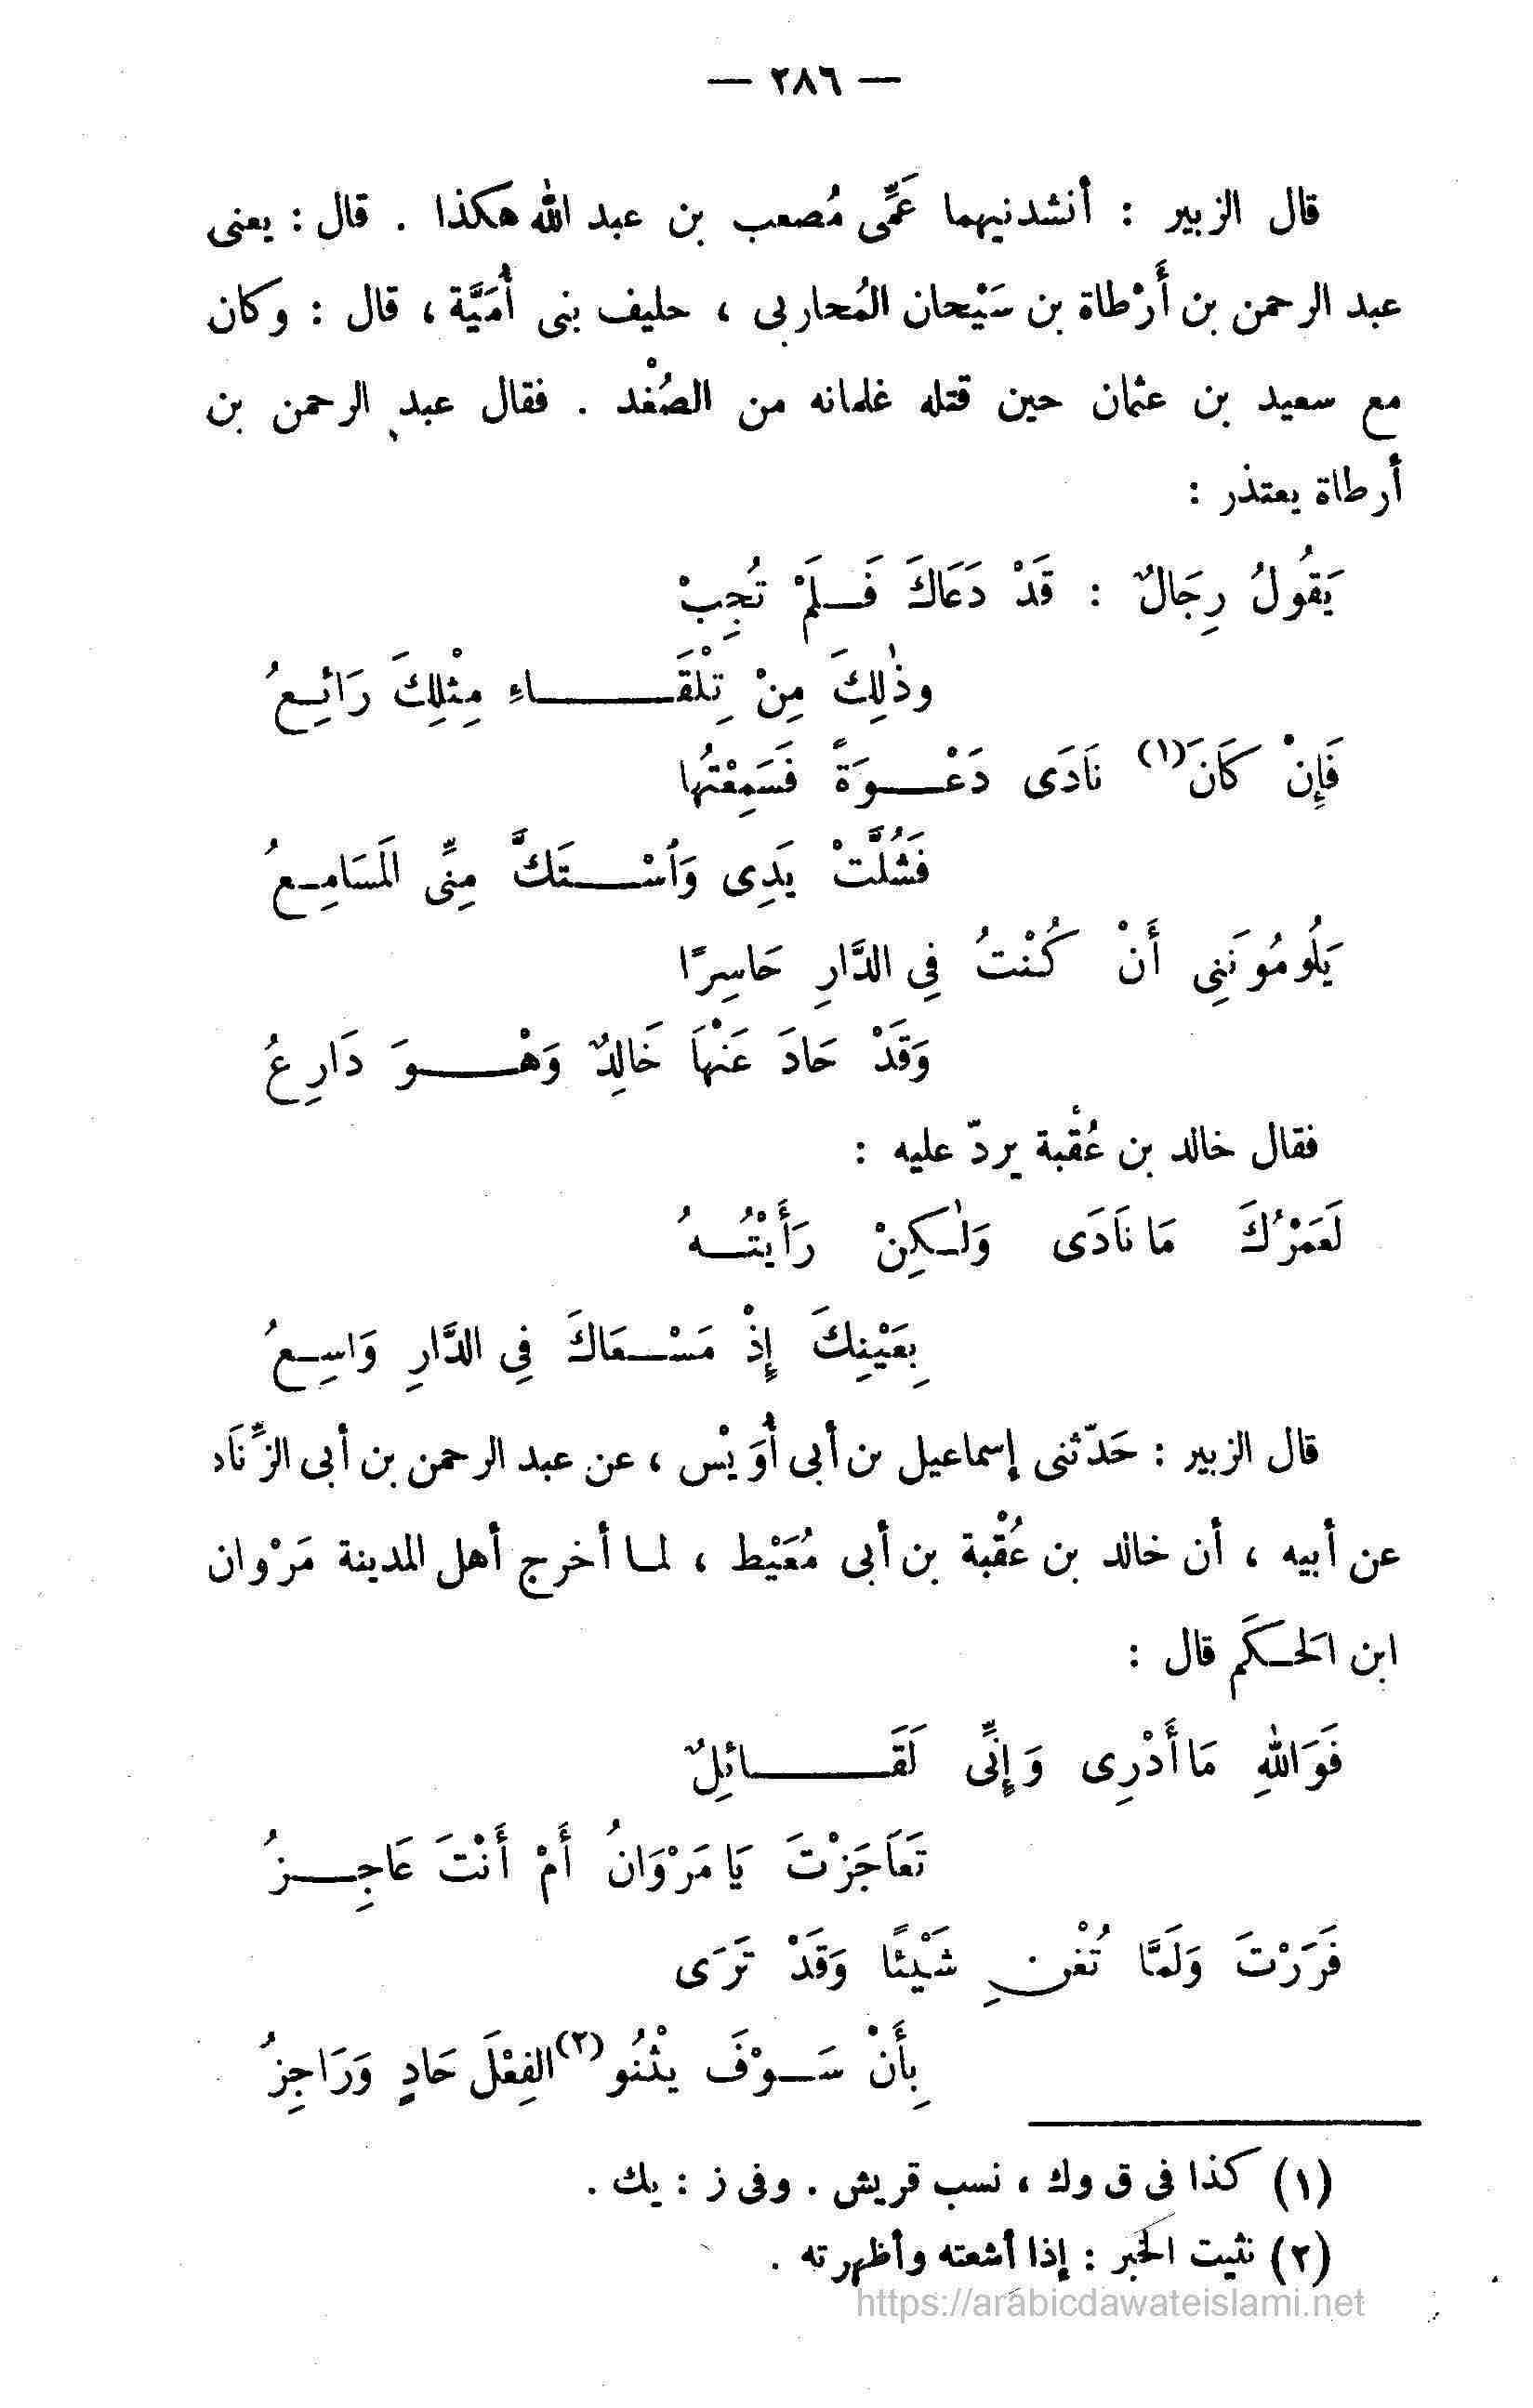 — ٢٨٦ —
قال الزبير : أنشدنيهما عَمِّى مُصعب بن عبد الله هكذا . قال : يعنى
عبد الرحمن بن أَرْطاة بن سَيْحان المُحاربى ، حليف بنى أُمَيَّة ، قال : وكان
مع سعيد بن عثمان حين قتله غلمانه من الصُغْد . فقال عبد الرحمن بن
أرطاة يعتذر :
يَقُولُ رِجَالٌ : قَدْ دَعَاكَ فَلَمْ تُجِبْ
وذٰلِكَ مِنْ تِلْقَاءِ مِثْلِكَ رَائِعُ
فَإِنْ كَانَ(١) نَادَى دَعْوَةً فَسَمِعْتُها
فَشُلَّتْ يَدِى وَاسْتَكَّ مِنِّى المَسَامِعُ
يَلُومُونَنِى أَنْ كُنْتُ فِى الدَّارِ حَاسِرًا
وَقَدْ حَادَ عَنْهَا خَالِدٌ وَهْوَ دَارِعُ
فقال خالد بن عُقْبة يردّ عليه :
لَعَمْرُكَ مَا نَادَى وَلٰكِنْ رَأَيْتُهُ
بِعَيْنِكَ إِذْ مَسْعَاكَ فِى الدَّارِ وَاسِعُ
قال الزبير : حَدّثنى إسماعيل بن أبى أُوَيْس ، عن عبد الرحمن بن أبى الزِّنَاد
عن أبيه ، أن خالد بن عُقْبة بن أبى مُعَيْط ، لما أخرج أهل المدينة مَرْوان
ابن الحَكَم قال :
فَوَاللهِ مَا أَدْرِى وَإِنِّى لَقَائِلٌ
تَعَاجَزْتَ يَا مَرْوَانُ أَمْ أَنْتَ عَاجِزُ
فَرَرْتَ وَلَمَّا تُغْنِ شَيْئًا وَقَدْ تَرَى
بِأَنْ سَوْفَ يَثْنُو(٢) الفِعْلَ حَادٍ وَرَاجِزُ
(١) كذا فى ق وك ، نسب قريش . وفى ز : يك .
(٢) نثيت الخبر : إذا أشعته وأظهرته .
https://arabicdawateislami.net